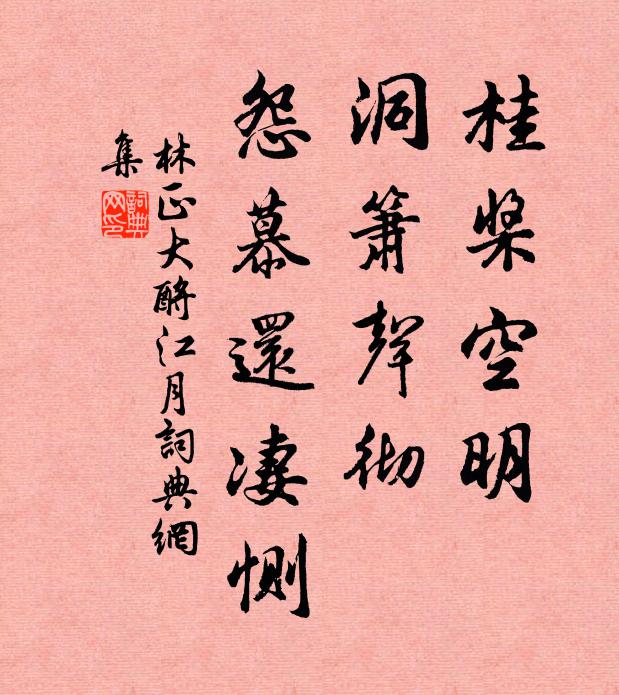 桂槳空明
洞簫聲彻
怨慕還凄惻
林正大酹江月詞典網
集
詞典
网印